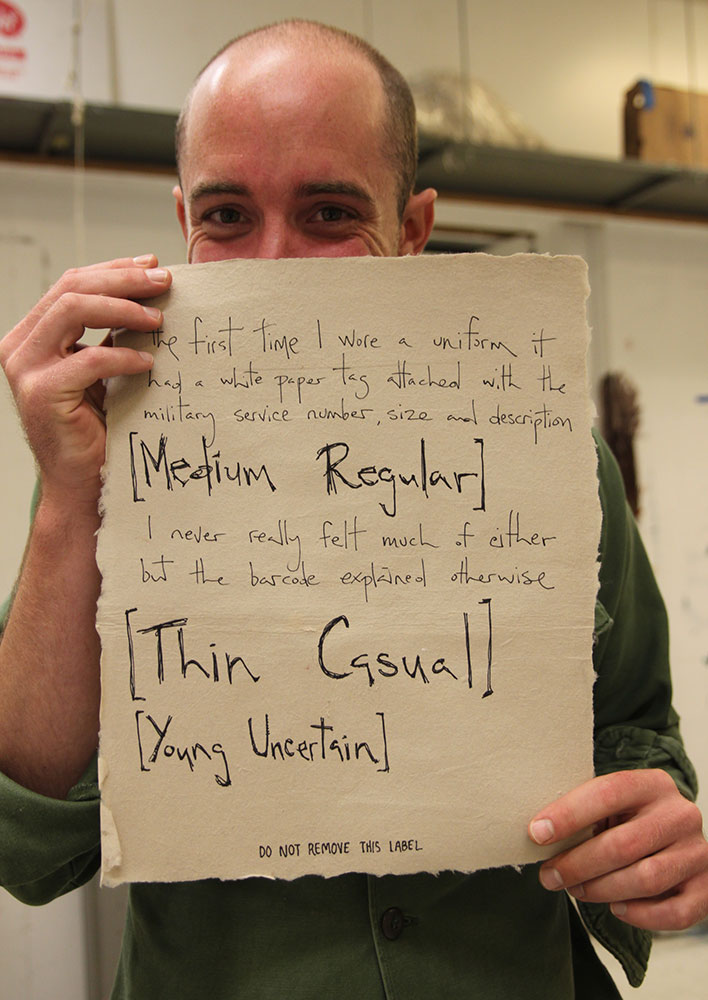 the first time I wore a uniform it
had a white paper tag attached with the
military service number, size and description
[Medium Regular]
I never really felt much of either
but the barcode explained otherwise
[Thin Casual]
[Young Uncertain]
DO NOT REMOVE THIS LABEL